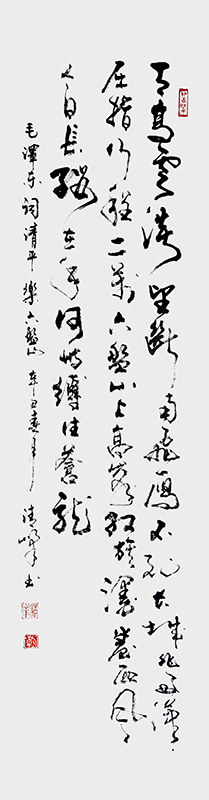 天高雲淡望斷南飛雁不到長城非好漢
屈指行程二萬六盤山上高峰紅旗漫卷西風
今日長纓在手何時縛住蒼龍
毛澤東詞清平樂六盤山 辛丑春月 清峰書